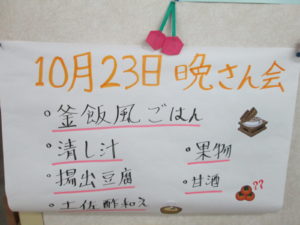 10月23日 晩さん会
◦釜飯風ごはん
◦清し汁
◦果物
◦揚出豆腐
◦甘酒
◦土佐酢和え
??